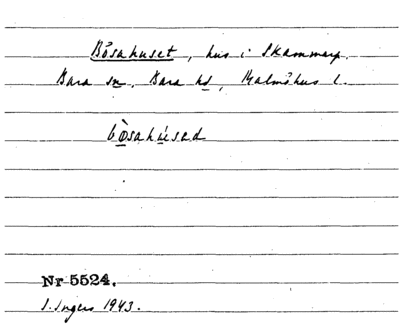 Bösahuset, hus i Skammarp.
Bara sn. Bara hd, Malmöhus l.
bòsahúsad
Nr 5524.
I. Ingers 1943.